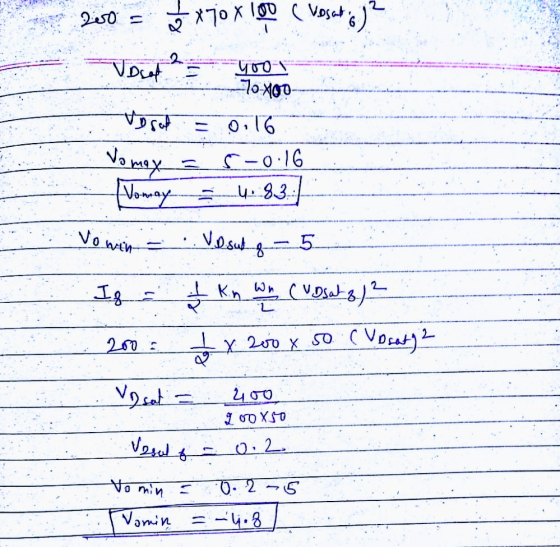 200 = 1/2 × 70 × 100/1 (VDsat6)^2
VDsat^2 = 400/70×100
VDsat = 0.16
Vomax = 5 - 0.16
Vomax = 4.83
Vomin = VDsat8 - 5
I8 = 1/2 Kn Wn/L (VDsat8)^2
200 = 1/2 × 200 × 50 (VDsat)^2
VDsat = 400/200×50
VDsat8 = 0.2
Vomin = 0.2 - 5
Vomin = -4.8